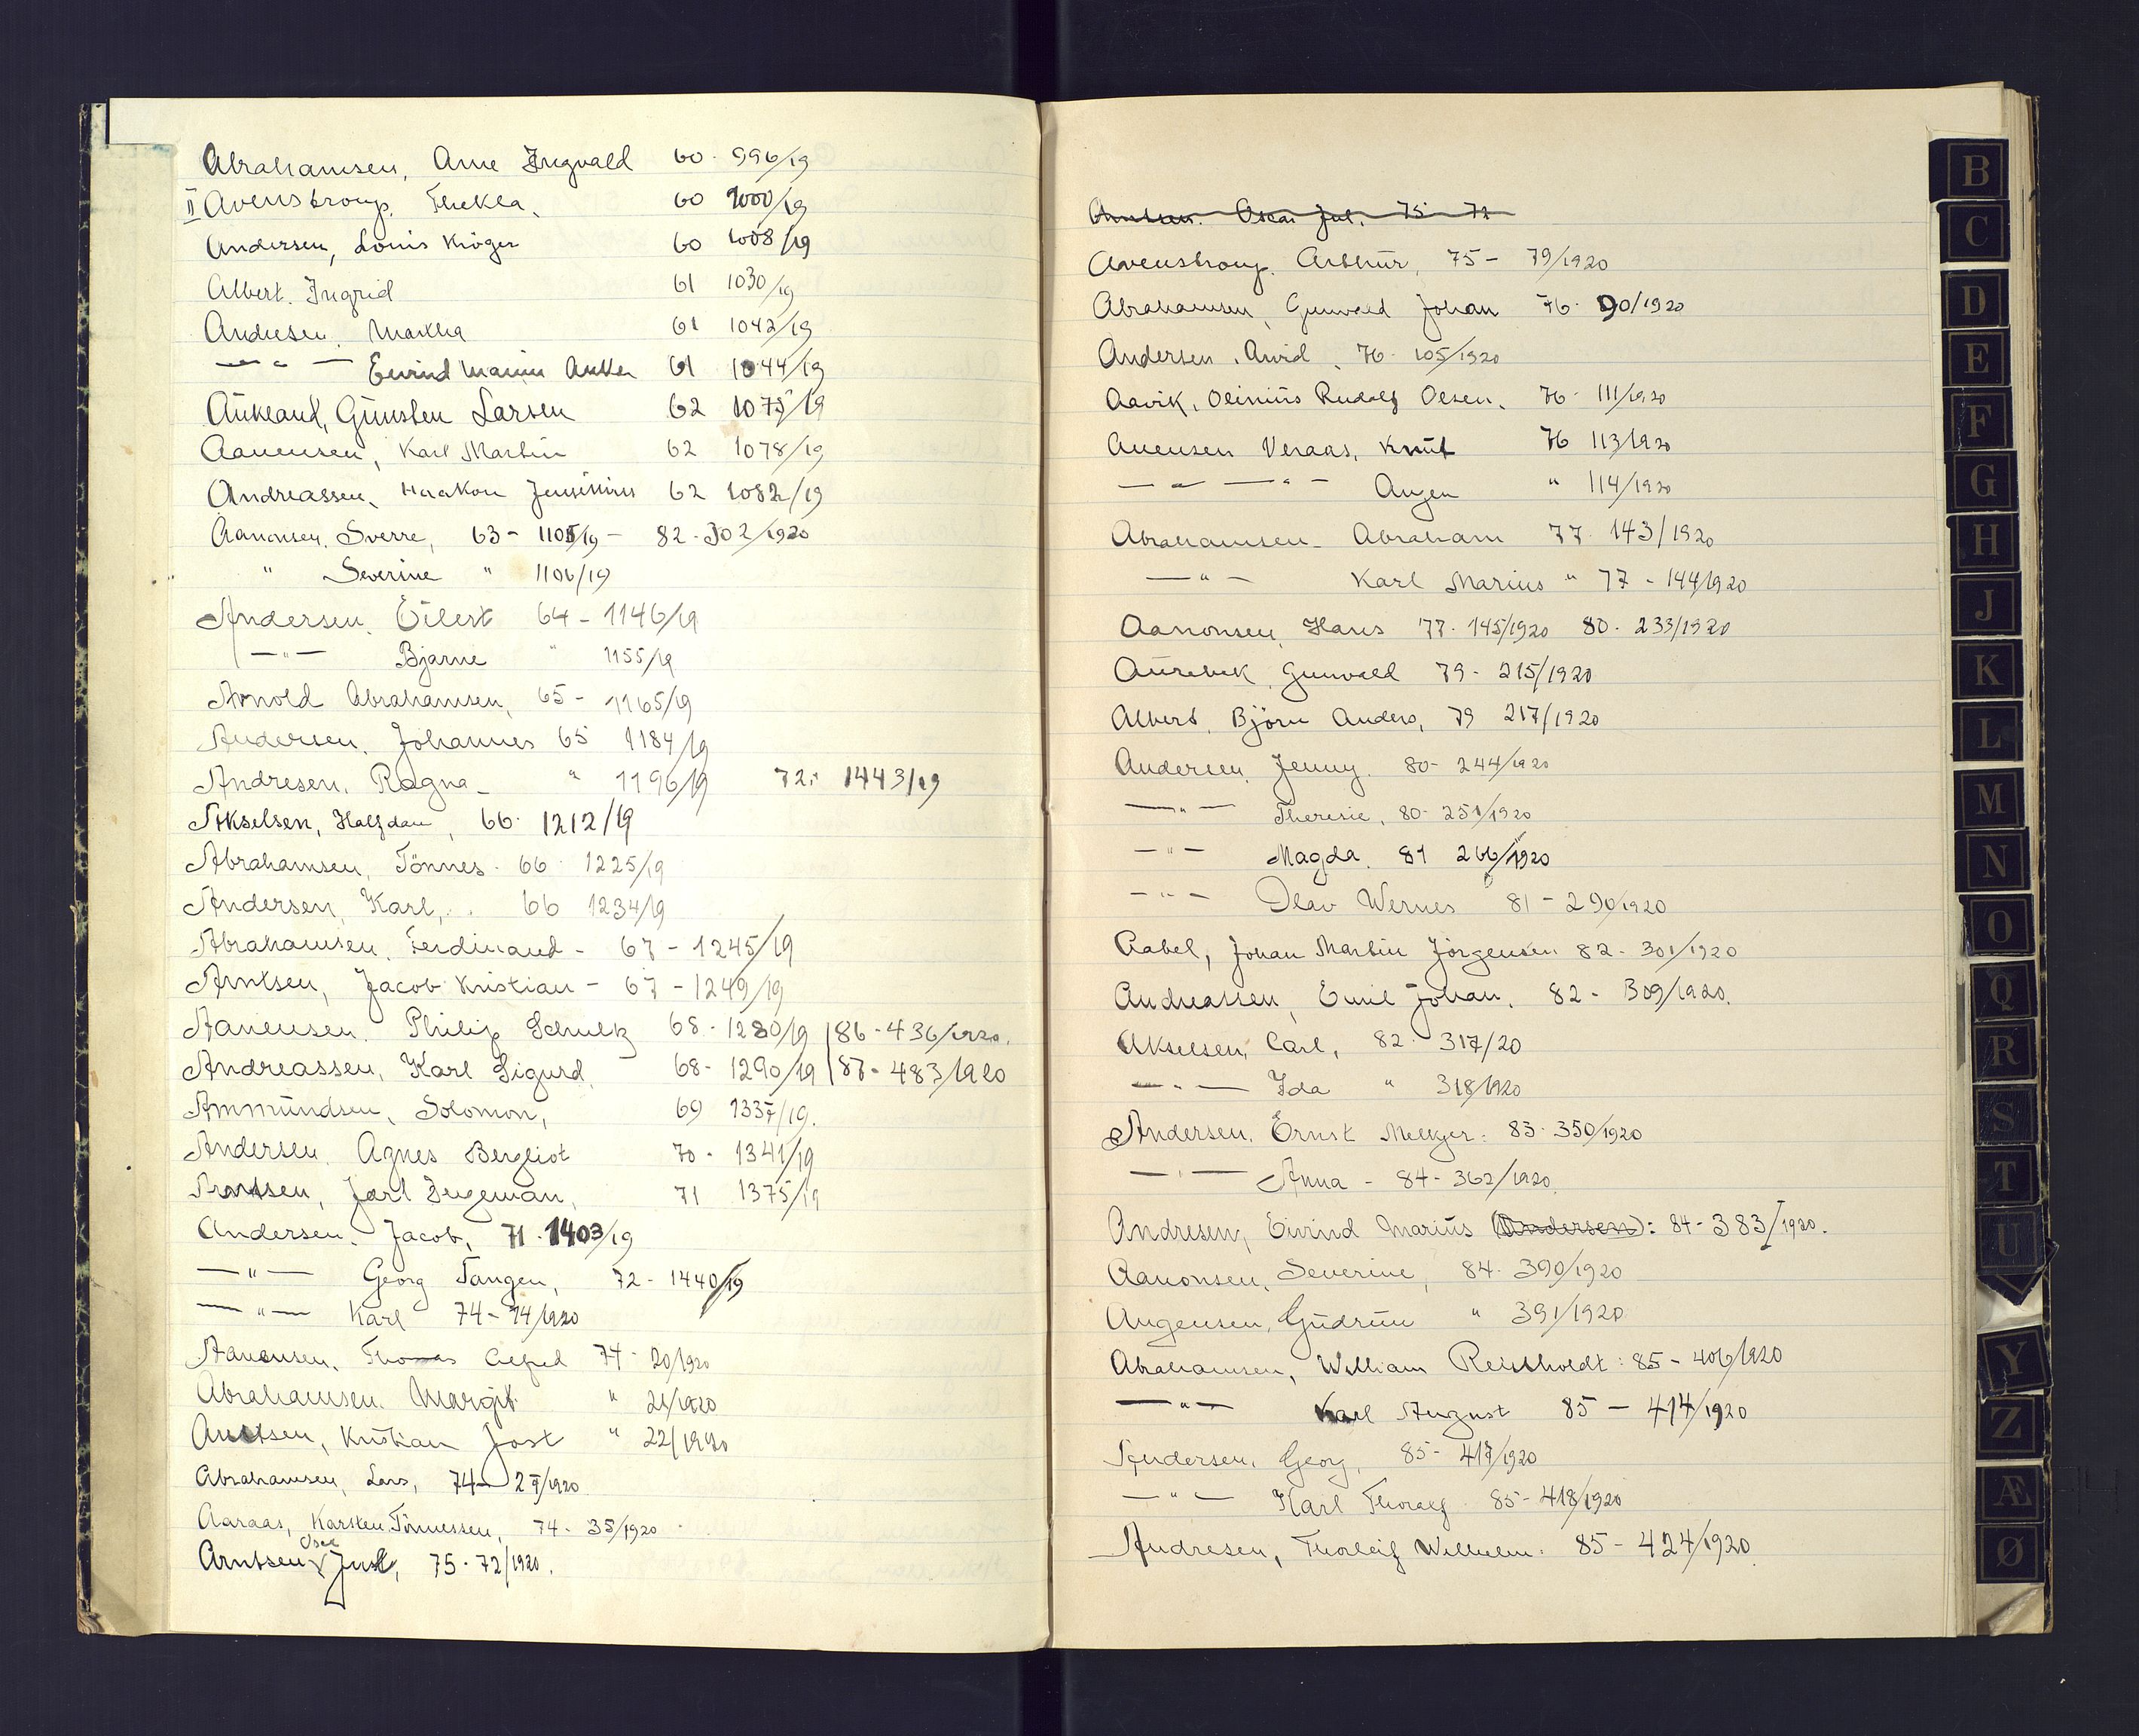 Abrahamsen, Arne Ingvald 60 - 996/19
II Avenstroup. Thekla. 60 1000/19
Andersen, Louis Kröger 60 1008/19
Albert. Ingrid 61 1030/19
Andresen. Martha 61 1042/19
— " — Eivind Marius Anker 61 1044/19
Aukland, Gunsten Larsen 62 1075/19
Aanensen, Karl Martin 62 1078/19
Andreassen, Haakon 62 1082/19
Aanonsen. Sverre, 63 - 1105/19 - 82 - 302/1920
" Severine " 1106/19
Andersen. Eilert 64 - 1146/19
— " — Bjarne " 1155/19
Arnold Abrahamsen, 65 - 1165/19
Andersen. Johannes 65 1184/19
Andresen. Ragna - " 1196/19 72 - 1443/19
Akselsen, Halfdan, 66 - 1212/19
Abrahamsen, Tönnes - 66 - 1225/19
Andersen, Karl, 66 1234/19
Abrahamsen. Ferdinand - 67 - 1245/19
Arntsen, Jacob Kristian - 67 - 1249/19
Aanensen. Philip Schultz 68 - 1280/19 | 86 - 436/1920.
Andreassen, Karl Sigurd. 68 - 1290/19 | 87 - 483/1920
Ammundsen, Solomon, 69 1337/19.
Andersen. Agnes Bergliot 70 - 1341/19
Arntsen, Jarl 71 1375/19
Andersen. Jacob, 71 - 1403/19
— " — Georg Tangen, 72 - 1440/19
— " — Karl 74 - 14/1920
Aanensen. Thomas Alfred 74 - 20/1920
Abrahamsen. Margit " 21/1920
Arntsen, Kristian Jost " 22/1920
Abrahamsen, Lars, 74 - 27/1920
Aaraas, Karsten Tönnessen, 74 - 35/1920
Arntsen Oscar Jul, 75 - 72/1920.
Arntsen. Oscar Jul. 75 - 72
Avenstroup. Arthur, 75 - 79/1920
Abrahamsen, Gunvald Johan 76 - 90/1920
Andersen. Arvid, 76 - 105/1920
Aavik, Olinius Rudolf Olsen. 76 - 111/1920
Anensen Veraas, Knut 76 113/1920
— " — " — Angen " 114/1920
Abrahamsen - Abraham 77 - 143/1920
— " — Karl Marius " 77 - 144/1920
Aanonsen, Hans 77 - 145/1920 80 - 233/1920
Aurebek, Gunvald 79 - 215/1920
Albert, Björn Anders, 79 217/1920
Andersen. Jenny. 80 - 244/1920
— " — Theresie, 80 - 251/1920
— " — Magda. 81 266/1920
— " — Olav Wernes 81 - 290/1920
Aabel, Johan Martin Jörgensen 82 - 301/1920
Andreassen, Emil Johan. 82 - 309/1920.
Akselsen, Carl, 82 - 317/20
— " — Ida " 318/1920
Andersen. Ernst Melkjer: 83 - 350/1920
— " — Anna - 84 - 362/1920
Andresen, Eivind Marius (Andersen): 84 - 383/1920.
Aanonsen, Severine, 84 - 390/1920
Angensen, Gudrun " 391/1920
Abrahamsen, William Reistholdt: 85 - 406/1920
— " — Karl August 85 - 414/1920
Andersen, Georg, 85 - 417/1920
— " — Karl Thoralf 85 - 418/1920
Andresen, Thorleif Wilhelm: 85 - 424/1920
B
C
D
E
F
G
H
J
K
L
M
N
O
Q
R
S
T
U
Y
Z
Æ
Ø